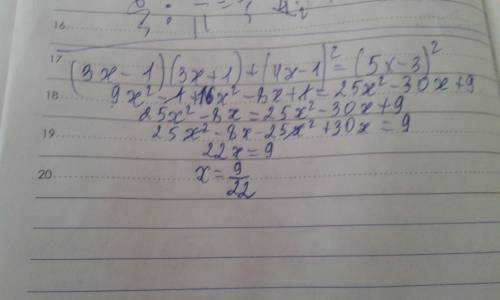 16
17
(3x-1)(3x+1)+(4x-1)²=(5x-3)²
18 9x²-1+16x²-8x+1=25x²-30x+9
25x²-8x=25x²-30x+9
19 25x²-8x-25x²+30x=9
22x=9
20 x=9/22